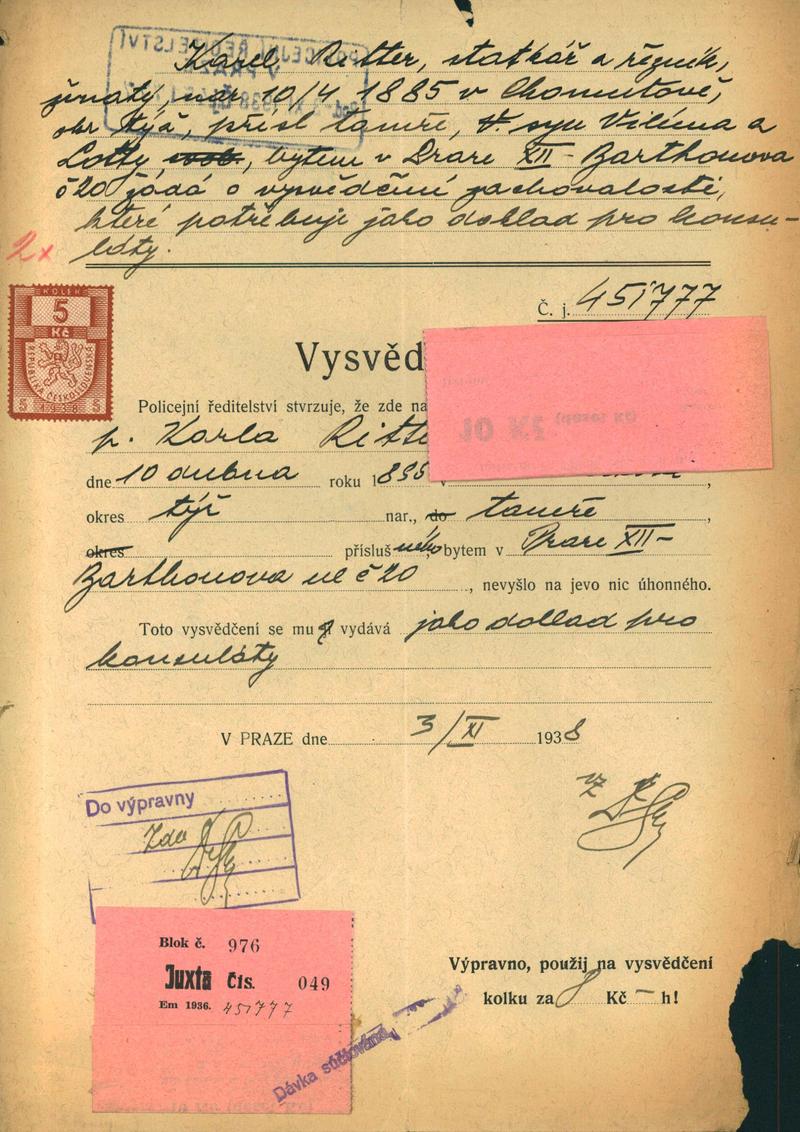 Karel Ritter, statkář a řezník,
ženatý, nar. 10/4 1885 v Chomutově,
okr. Týř, přísl. tamže, syn Viléma a
Lotty, bytem v Praze XII - Barthonova
č 20 žádá o vysvědčení zachovalosti,
které potřebuje jako doklad pro konsu-
láty.
2x
Č. j. 451777
KOLEK
5
Kč
REPUBLIKA ČESKOSLOVENSKÁ
5 1938 5
Vysvěd
10 Kč (deset Kč)
Policejní ředitelství stvrzuje, že zde na
p. Karla Ritte
dne 10 dubna roku 1895 v
okres týř nar., do tamže
okres příslušného, bytem v Praze XII-
Barthonova ul č 20, nevyšlo na jevo nic úhonného.
Toto vysvědčení se mu vydává jako doklad pro
konsuláty
V PRAZE dne 3/XI 1938
vz
Do výpravny
Blok č. 976
Juxta Čís. 049
Em 1936. 451777
Výpravno, použij na vysvědčení
kolku za 8 Kč — h!
Dávka súčtována